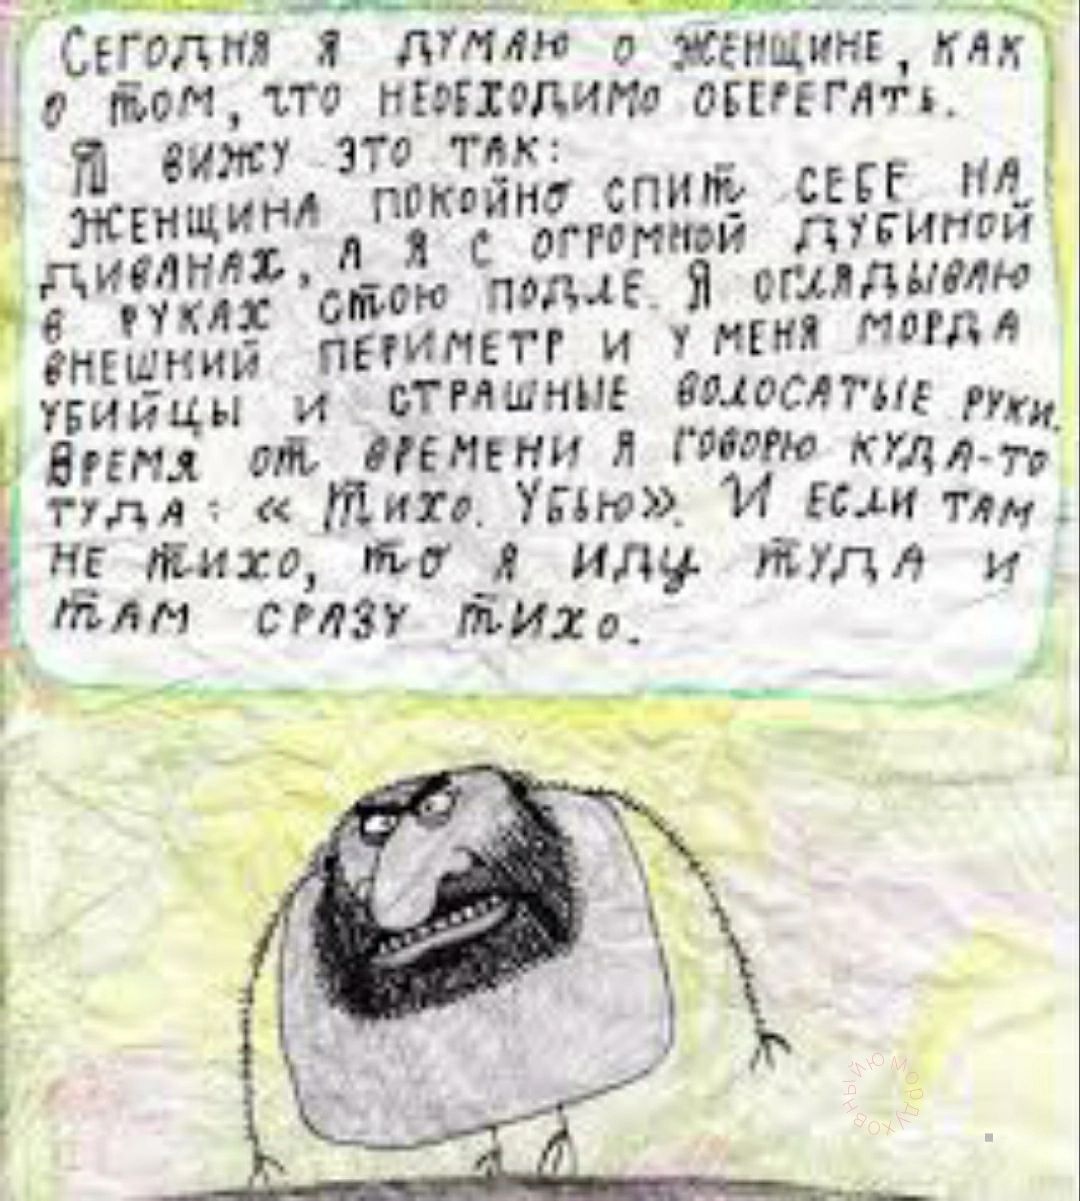 Сегодня я думаю о женщине, как
о том, что необходимо оберегать.
Я вижу это так:
женщина покойно спит себе на
диванах, а я с огромной дубиной
в руках стою подле. Я оглядываю
внешний периметр и у меня морда
убийцы и страшные волосатые руки.
Время от времени я говорю куда-то
туда: «Тихо. Убью». И если там
не тихо, то я иду туда и
там сразу тихо.
ДУХОВНЫЙ Ю МОР